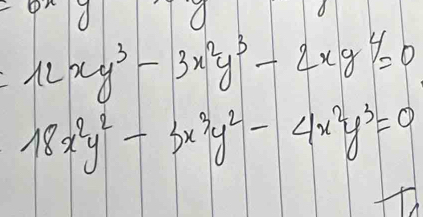 = 12xy³ - 3x²y³ - 2xy⁴ = 0
18x²y² - 3x³y² - 4x²y³ = 0